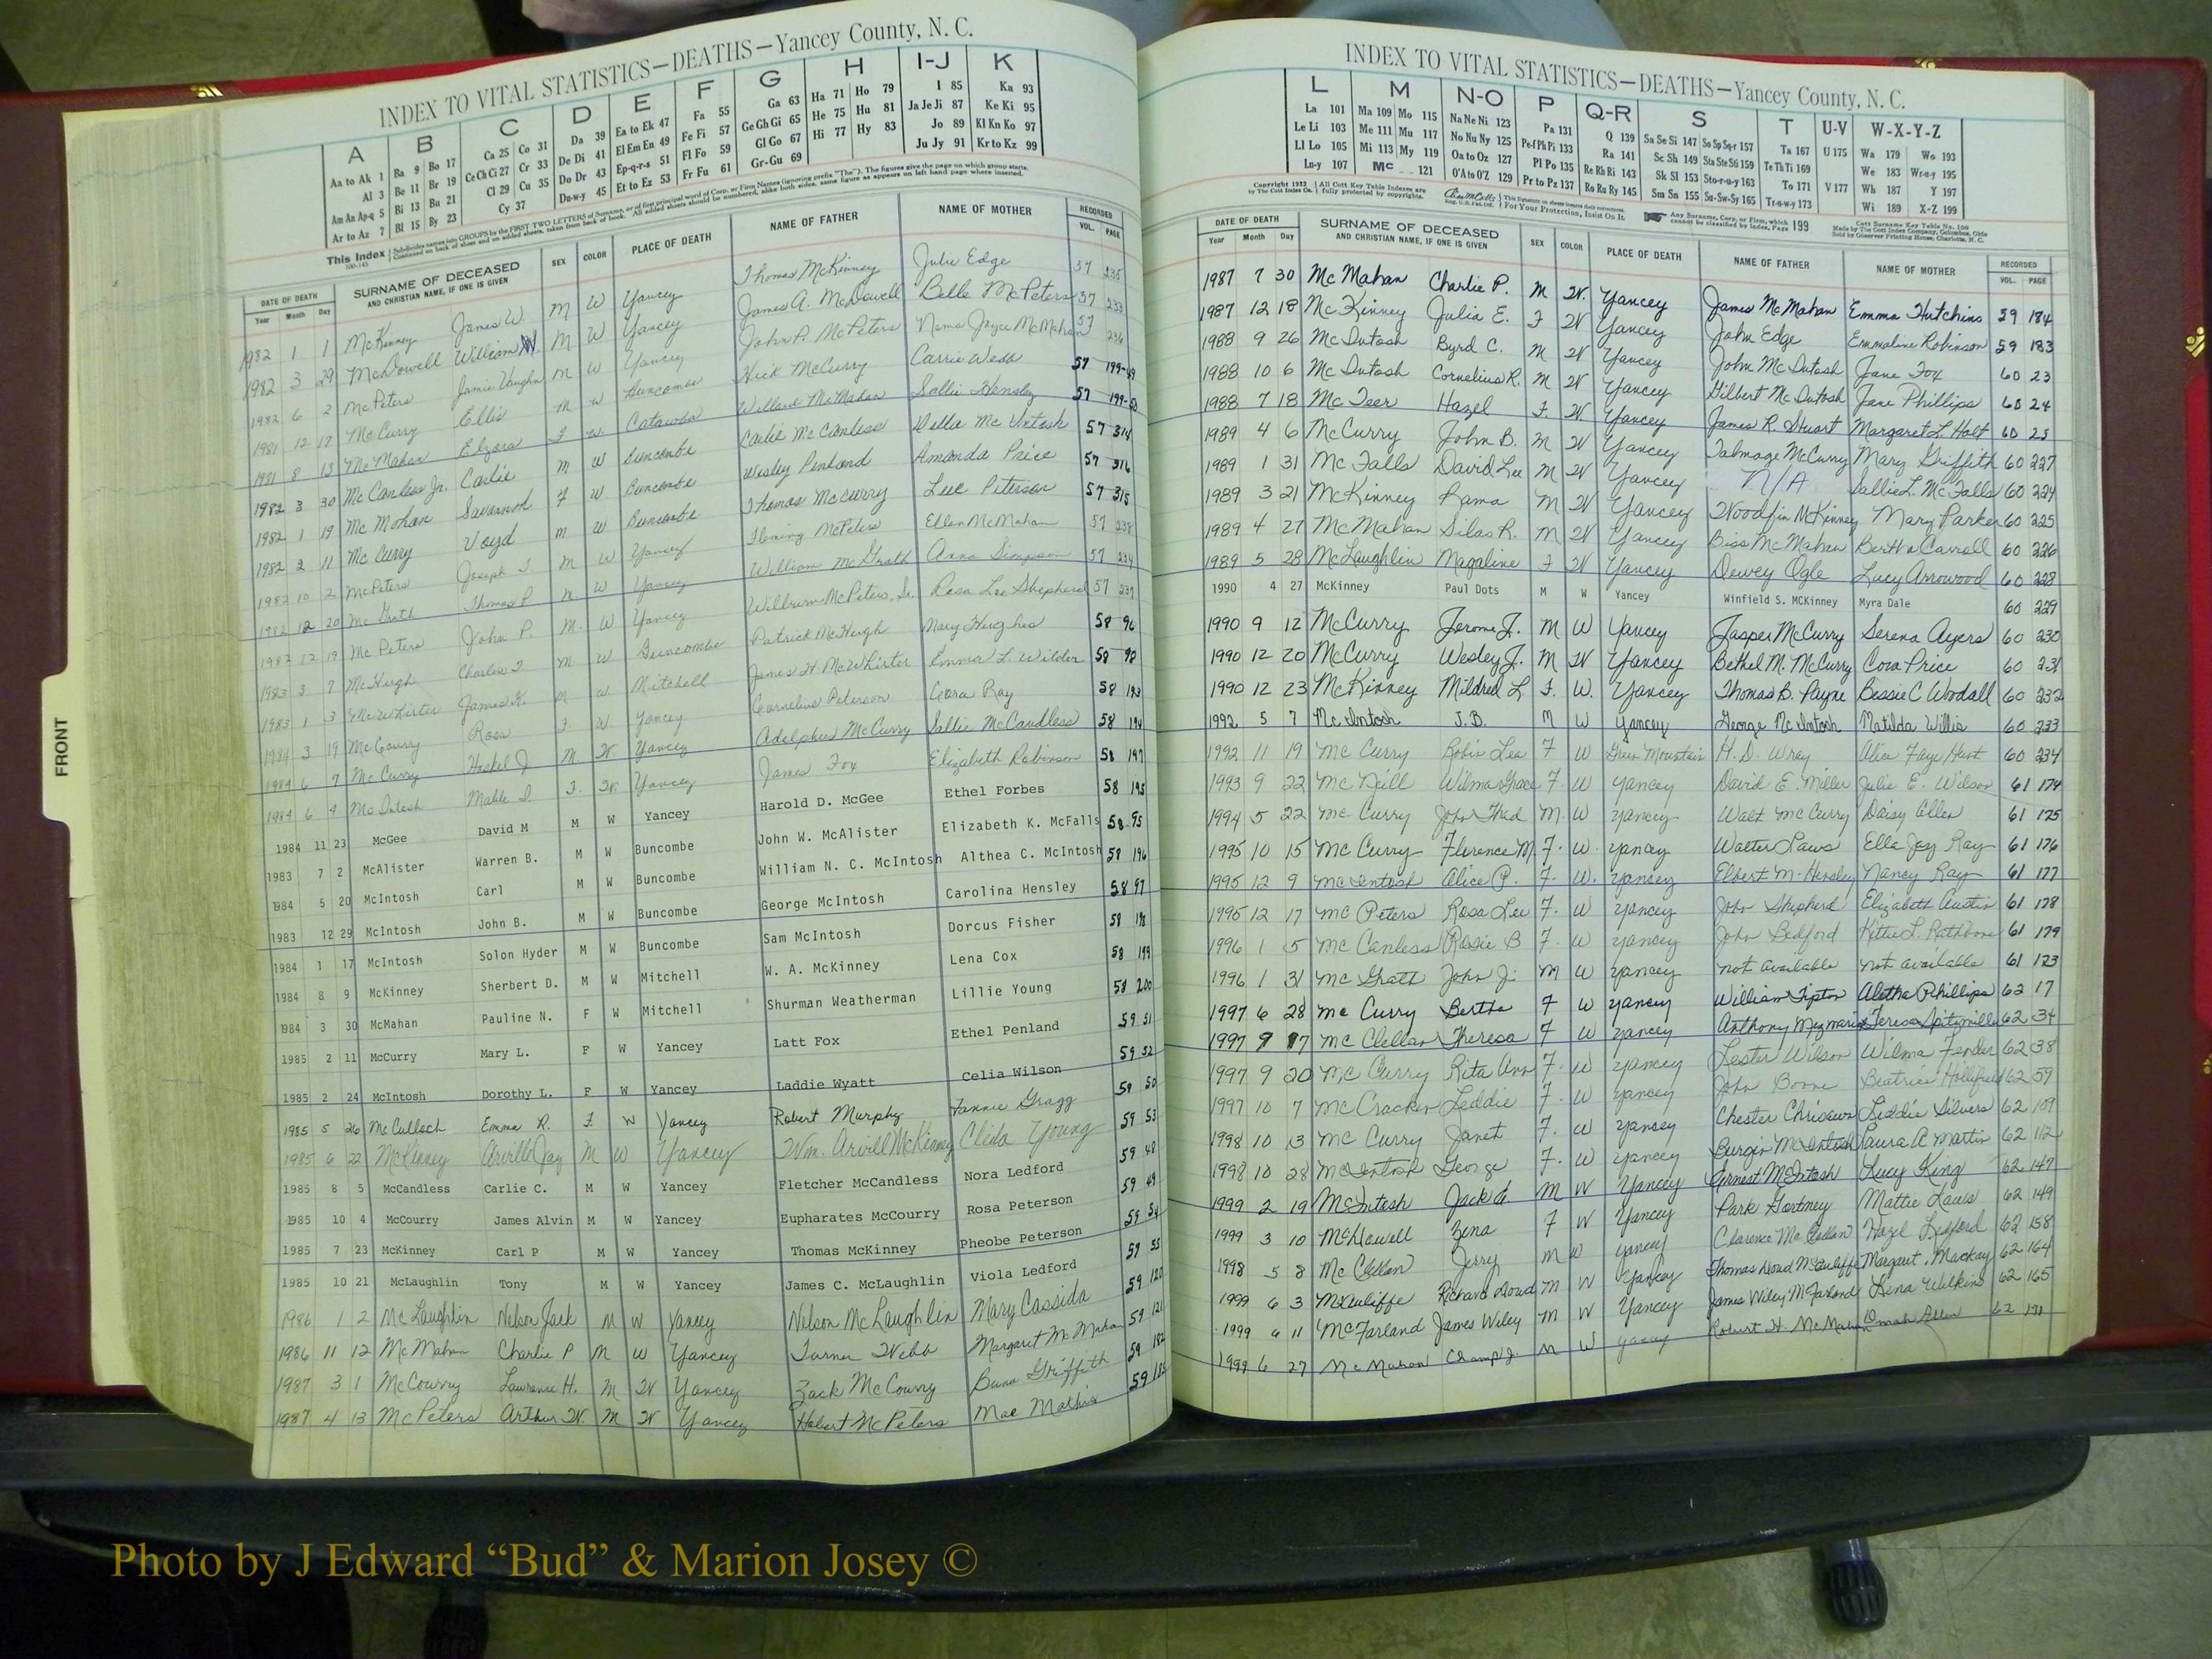 INDEX TO VITAL STATISTICS—DEATHS—Yancey County, N. C.
A B C D E F G H I-J K
Aa to Ak 1 Ba 9 Bo 17 Ca 25 Co 31 Da 39 Ea to Ek 47 Fa 55 Ga 63 Ha 71 Ho 79 I 85 Ka 93
Al 3 Be 11 Br 19 Ce Ch Ci 27 Cr 33 De Di 41 El Em En 49 Fe Fi 57 Ge Gh Gi 65 He 75 Hu 81 Ja Je Ji 87 Ke Ki 95
Am An Ap-q 5 Bi 13 Bu 21 Cl 29 Cu 35 Do Dr 43 Ep-q-r-s 51 Fl Fo 59 Gl Go 67 Hi 77 Hy 83 Jo 89 Kl Kn Ko 97
Ar to Az 7 Bl 15 By 23 Cy 37 Du-w-y 45 Et to Ez 53 Fr Fu 61 Gr-Gu 69 Ju Jy 91 Kr to Kz 99
This Index
DATE OF DEATH SURNAME OF DECEASED SEX COLOR PLACE OF DEATH NAME OF FATHER NAME OF MOTHER RECORDED
Year Month Day AND CHRISTIAN NAME, IF ONE IS GIVEN VOL. PAGE
1982 1 1 McKinney James W. M W Yancey Thomas McKinney Julie Edge 57 235
1982 3 29 McDowell William W. M W Yancey James A. McDowell Belle McPeters 57 233
1982 6 2 McPeters Jamie Vaughn M W Yancey John P. McPeters Nama Joyce McMahan 57 236
1981 12 17 McCurry Ellis M W Buncombe Hick McCurry Carrie Webb 57 199-49
1981 8 15 McMahan Elzora F W Catawba Willard McMahan Sallie Hensley 57 199-50
1982 3 30 McCanless Jr. Carlie M W Buncombe Carlie McCanless Della McIntosh 57 314
1982 1 19 McMahan Savannah F W Buncombe Wesley Penland Amanda Price 57 316
1982 2 11 McCurry Voyd M W Buncombe Thomas McCurry Luce Peterson 57 315
1982 10 2 McPeters Joseph T. M W Yancey Fleming McPeters Ellen McMahan 57 238
1982 12 20 McGrath Thomas P M W Yancey William McGrath Anna Simpson 57 234
1982 12 19 McPeters John P. M. W Yancey Wilburn McPeters, Sr. Rosa Lee Shepherd 57 237
1983 3 7 McHugh Charles F M W Buncombe Patrick McHugh Mary Hughes 58 96
1983 1 3 McWhirter James H. M W Mitchell James H. McWhirter Emma L. Wilder 58 98
1984 3 19 McCourry Rosa F W Yancey Cornelius Peterson Cora Ray 58 193
1984 6 7 McCurry Haskel J M W Yancey Adolphus McCurry Sallie McCandless 58 194
1984 6 4 McIntosh Mable I. F. W. Yancey James Fox Elizabeth Robinson 58 197
1984 11 23 McGee David M M W Yancey Harold D. McGee Ethel Forbes 58 195
1983 7 2 McAlister Warren B. M W Buncombe John W. McAlister Elizabeth K. McFalls 58 95
1984 5 20 McIntosh Carl M W Buncombe William N. C. McIntosh Althea C. McIntosh 58 196
1983 12 29 McIntosh John B. M W Buncombe George McIntosh Carolina Hensley 58 97
1984 1 17 McIntosh Solon Hyder M W Buncombe Sam McIntosh Dorcus Fisher 58 198
1984 8 9 McKinney Sherbert D. M W Mitchell W. A. McKinney Lena Cox 58 199
1984 3 30 McMahan Pauline N. F W Mitchell Shurman Weatherman Lillie Young 58 200
1985 2 11 McCurry Mary L. F W Yancey Latt Fox Ethel Penland 59 51
1985 2 24 McIntosh Dorothy L. F W Yancey Laddie Wyatt Celia Wilson 59 52
1985 5 26 McCulloch Emma R. F. W Yancey Robert Murphy Fannie Gragg 59 50
1985 6 22 McKinney Arville Jay M W Yancey Wm. Arvill McKinney Clida Young 59 53
1985 8 5 McCandless Carlie C. M W Yancey Fletcher McCandless Nora Ledford 59 48
1985 10 4 McCourry James Alvin M W Yancey Eupharates McCourry Rosa Peterson 59 49
1985 7 23 McKinney Carl P M W Yancey Thomas McKinney Pheobe Peterson 59 54
1985 10 21 McLaughlin Tony M W Yancey James C. McLaughlin Viola Ledford 59 55
1986 1 2 McLaughlin Nelson Jack M W Yancey Nelson McLaughlin Mary Cassida 59 120
1986 11 12 McMahan Charlie P M W Yancey Turner Webb Margaret McMahan 59 121
1987 3 1 McCourry Lawrence H. M W Yancey Zack McCourry Buna Griffith 59 182
1987 4 13 McPeters Arthur W. M W Yancey Hobert McPeters Mae Mathis 59 185
FRONT
INDEX TO VITAL STATISTICS—DEATHS—Yancey County, N. C.
L M N-O P Q-R S T U-V W-X-Y-Z
La 101 Ma 109 Mo 115 Na Ne Ni 123 Pa 131 Q 139 Sa Se Si 147 So Sp Sq-r 157 Ta 167 U 175 Wa 179 Wo 193
Le Li 103 Me 111 Mu 117 No Nu Ny 125 Pe-f Ph Pi 133 Ra 141 Sc Sh 149 Sta Ste Sti 159 Te Th Ti 169 We 183 Wr-u-y 195
Ll Lo 105 Mi 113 My 119 Oa to Oz 127 Pl Po 135 Re Rh Ri 143 Sk Sl 153 Sto-r-u-y 163 To 171 V 177 Wh 187 Y 197
Lu-y 107 Mc 121 O'A to O'Z 129 Pr to Pz 137 Ro Ru Ry 145 Sm Sn 155 Su-Sw-Sy 165 Tr-u-w-y 173 Wi 189 X-Z 199
DATE OF DEATH SURNAME OF DECEASED SEX COLOR PLACE OF DEATH NAME OF FATHER NAME OF MOTHER RECORDED
Year Month Day AND CHRISTIAN NAME, IF ONE IS GIVEN VOL. PAGE
1987 7 30 McMahan Charlie P. M W. Yancey James McMahan Emma Hutchins 59 184
1987 12 18 McKinney Julia E. F W Yancey John Edge Emmaline Robinson 59 183
1988 9 26 McIntosh Byrd C. M W Yancey John McIntosh Jane Fox 60 23
1988 10 6 McIntosh Cornelius R. M W Yancey Gilbert McIntosh Jane Phillips 60 24
1988 7 18 McTeer Hazel F W. Yancey James R. Stuart Margaret L. Holt 60 25
1989 4 6 McCurry John B. M W Yancey Talmage McCurry Mary Griffith 60 227
1989 1 31 McFalls David Lee M W Yancey N/A Sallie L. McFalls 60 224
1989 3 21 McKinney Rama M W Yancey Woodfin McKinney Mary Parker 60 225
1989 4 27 McMahan Silas R. M W Yancey Biss McMahan Bertha Carroll 60 226
1989 5 28 McLaughlin Magaline F W Yancey Dewey Ogle Lucy Arrowood 60 228
1990 4 27 McKinney Paul Dots M W Yancey Winfield S. McKinney Myra Dale 60 229
1990 9 12 McCurry Jerome J. M W Yancey Jasper McCurry Serena Ayers 60 230
1990 12 20 McCurry Wesley J. M W Yancey Bethel M. McCurry Cora Price 60 231
1990 12 23 McKinney Mildred L F. W. Yancey Thomas B. Payne Bessie C Woodall 60 232
1992 5 7 McIntosh J. B. M W Yancey George McIntosh Matilda Willis 60 233
1992 11 19 McCurry Robin Lea F W Green Mountain H. D. Wray Alice Faye Hunt 60 234
1993 9 22 McNeill Wilma Grace F. W Yancey David E. Miller Julie E. Wilson 61 174
1994 5 22 McCurry John Thad M W Yancey Walt McCurry Daisy Allen 61 175
1995 10 15 McCurry Florence M F. W. Yancey Walter Laws Ella Joy Ray 61 176
1995 12 9 McIntosh Alice P. F. W. Yancey Elbert M. Hensley Nancy Ray 61 177
1995 12 17 McPeters Rosa Lee F. W Yancey John Shepherd Elizabeth Austin 61 178
1996 1 5 McCanless Rosie B F. W Yancey John Bedford Kittie L. Rathbone 61 179
1996 1 31 McGrath John J. M W Yancey not available not available 61 123
1997 6 28 McCurry Bertha F W Yancey William Tipton Aletha Phillips 62 17
1997 9 17 McClellan Theresa F W Yancey Anthony Teresa 62 34
1997 9 20 McCurry Rita Ann F. W Yancey Lester Wilson Wilma Fender 62 38
1997 10 7 McCracken Leddie F. W Yancey John Boone Beatrice Hollifield 62 59
1998 10 13 McCurry Janet F. W Yancey Chester Chrisawn Liddie Silvers 62 109
1998 10 28 McIntosh George F. W Yancey Burgin McIntosh Laura A Martin 62 112
1999 2 19 McIntosh Jack A M W Yancey Ernest McIntosh Lucy King 62 147
1999 3 10 McDowell Zena F W Yancey Park Gortney Mattie Laws 62 149
1998 5 8 McClellan Jerry M W Yancey Clarence McClellan Hazel Ledford 62 158
1999 6 3 McAuliffe Richard Doud M W Yancey Thomas Doud McAuliffe Margaret Mackay 62 164
1999 6 11 McFarland James Wiley M W Yancey James Wiley McFarland Lena Wilkins 62 165
1999 6 27 McMahan Champ J. M W Yancey Robert H. McMahan Omah Allen 62 171
Photo by J Edward “Bud” & Marion Josey ©